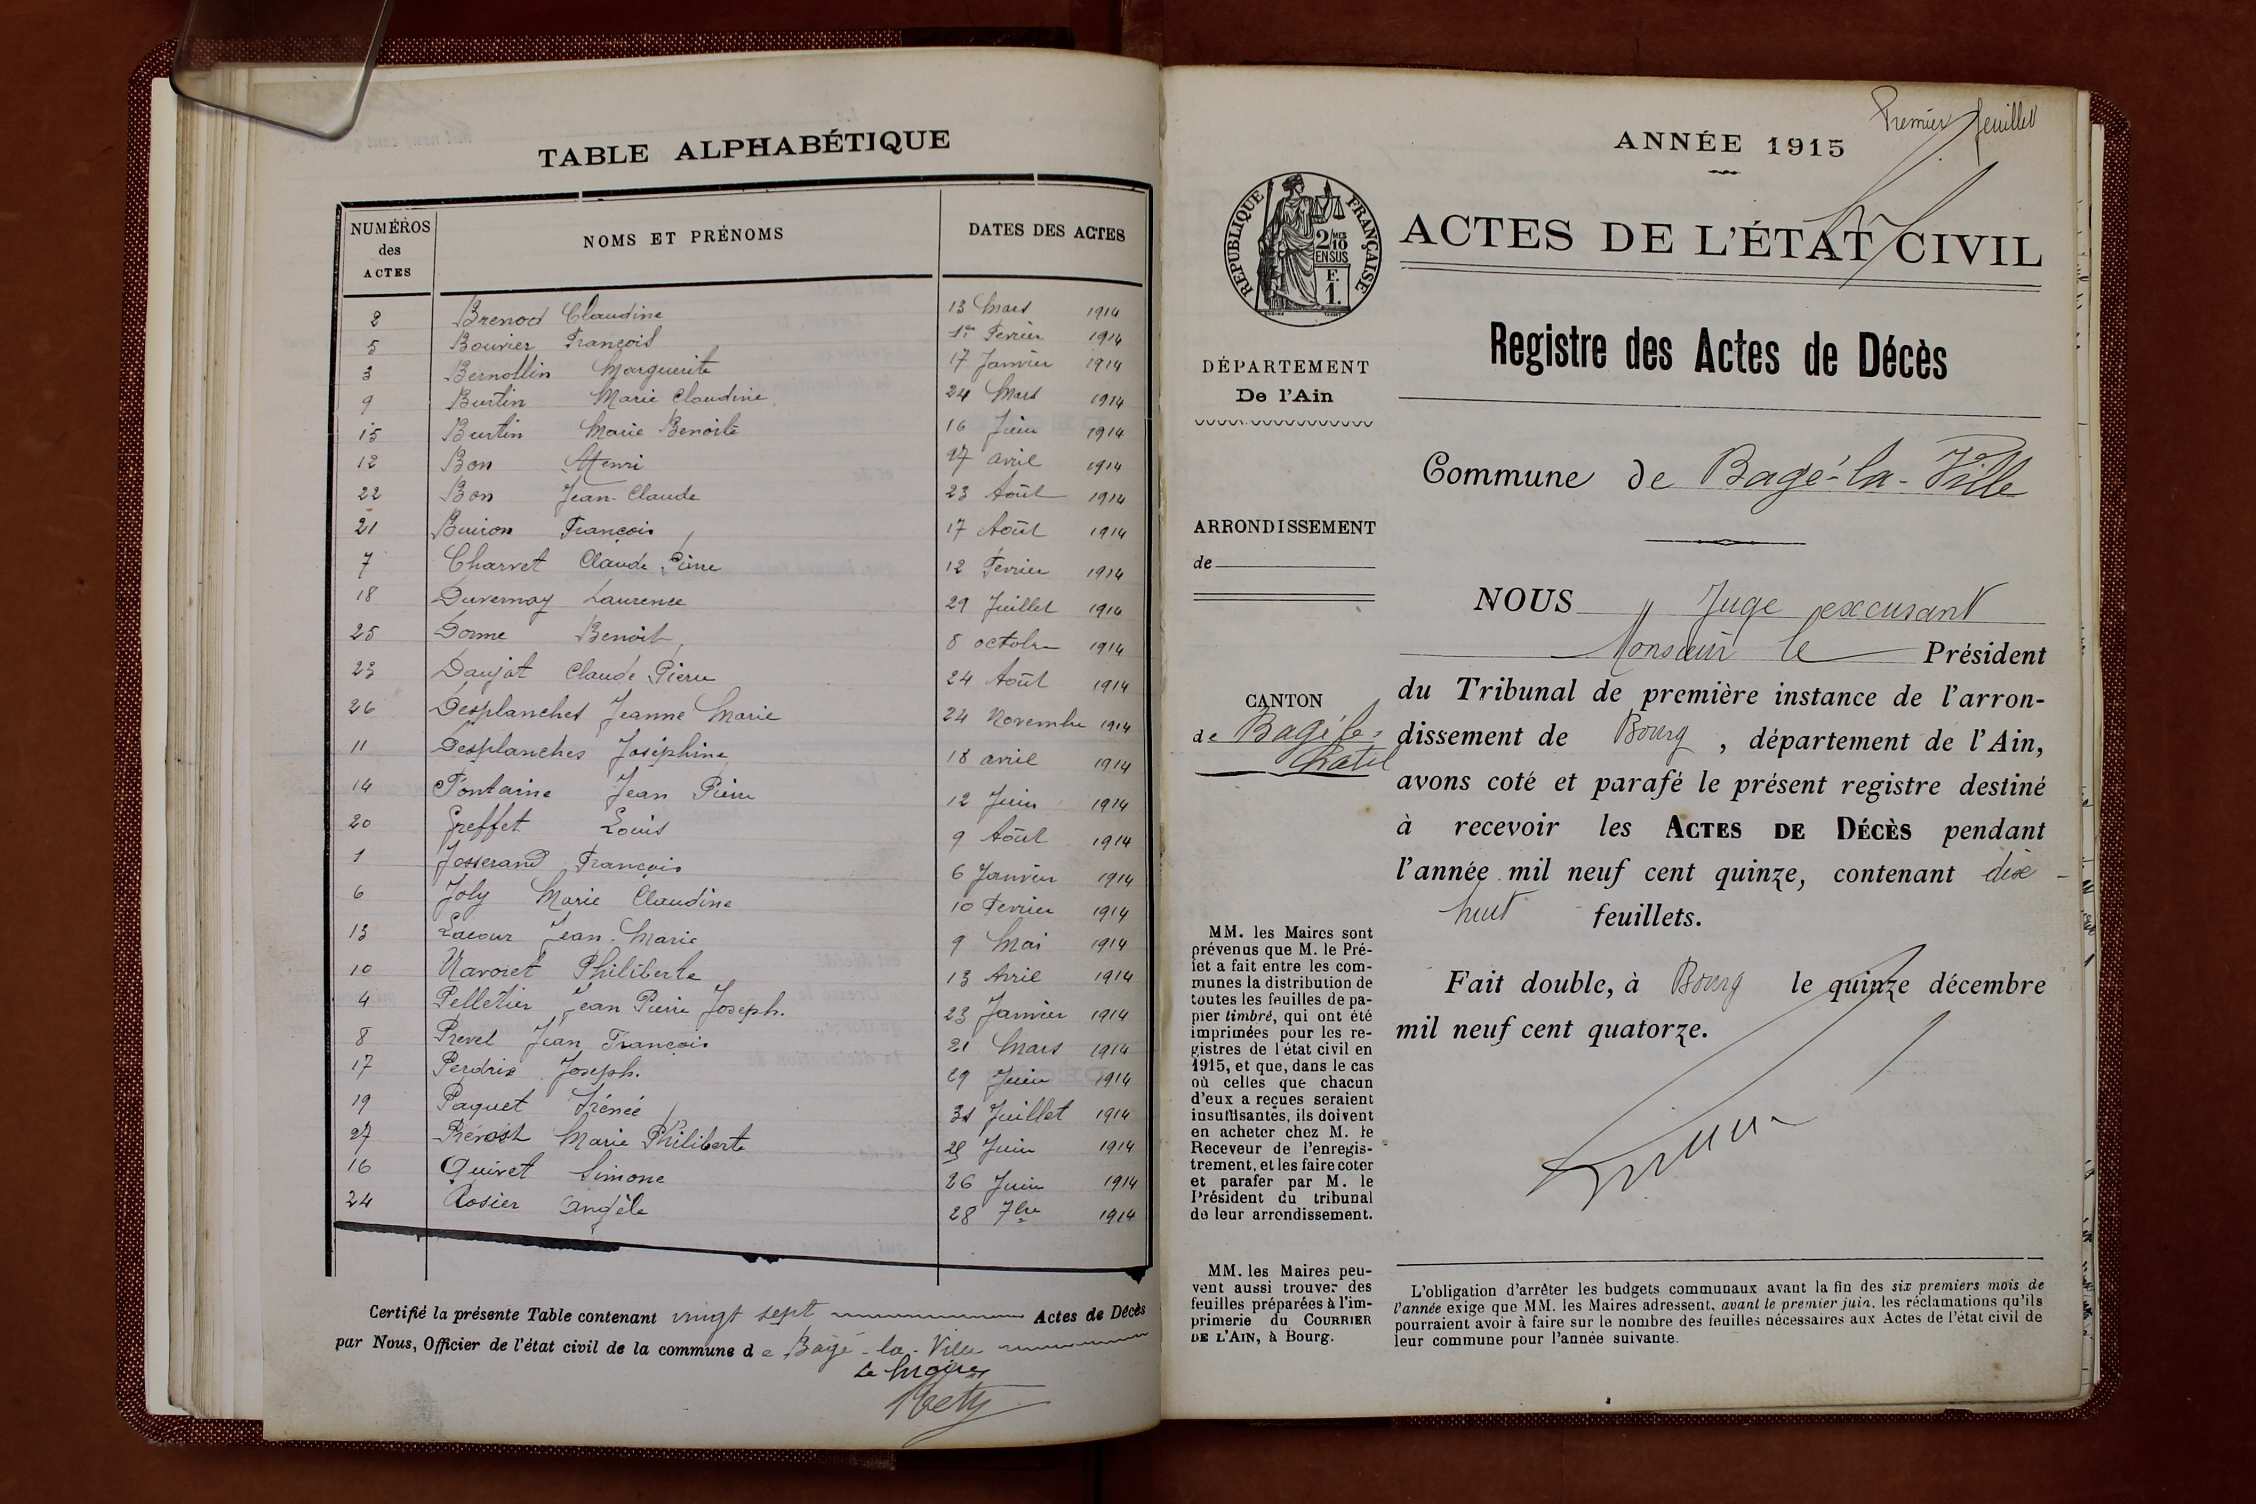 TABLE ALPHABÉTIQUE
NUMÉROS des ACTES NOMS ET PRÉNOMS DATES DES ACTES
2 Brenod Claudine 13 Mars 1914
5 Bouvier François 1er Fevrier 1914
3 Bernollin Marguerite 17 Janvier 1914
9 Burtin Marie Claudine 24 Mars 1914
15 Burtin Marie Benoite 16 Juin 1914
12 Bon Henri 27 avril 1914
22 Bon Jean-Claude 23 Août 1914
21 Buiron François 17 Août 1914
7 Charvet Claude Pierre 12 Fevrier 1914
18 Duvernay Laurence 29 Juillet 1914
25 Dorme Benoit 8 octobre 1914
23 Daujat Claude Pierre 24 Août 1914
26 Desplanches Jeanne Marie 24 Novembre 1914
11 Desplanches Joséphine 18 avril 1914
14 Fontaine Jean Pierre 12 Juin 1914
20 Greffet Louis 9 Août 1914
1 Josserand François 6 Janvier 1914
6 Joly Marie Claudine 10 Fevrier 1914
13 Lacour Jean-Marie 9 Mai 1914
10 Navoret Philiberte 13 Avril 1914
4 Pelletier Jean Pierre Joseph. 23 Janvier 1914
8 Prevel Jean François 21 Mars 1914
17 Perdrix Joseph. 29 Juin 1914
19 Paquet Irénée 31 Juillet 1914
27 Prévost Marie Philiberte Juin 1914
16 Quivet Simone 26 Juin 1914
24 Rosier Angèle 28 7bre 1914
Certifié la présente Table contenant vingt sept Actes de Décès
par Nous, Officier de l'état civil de la commune de Bagé-la-Ville
Le Maire
Premier feuillet
ANNÉE 1915
RÉPUBLIQUE FRANÇAISE
2/10 MES
EN SUS
F.
1.
ACTES DE L'ÉTAT CIVIL
Registre des Actes de Décès
DÉPARTEMENT
De l'Ain
Commune de Bagé-la-Ville
ARRONDISSEMENT
de
CANTON
de Bagé-le-
Châtel
MM. les Maires sont
prévenus que M. le Pré-
fet a fait entre les com-
munes la distribution de
toutes les feuilles de pa-
pier timbré, qui ont été
imprimées pour les re-
gistres de l'état civil en
1915, et que, dans le cas
où celles que chacun
d'eux a reçues seraient
insuffisantes, ils doivent
en acheter chez M. le
Receveur de l'enregis-
trement, et les faire coter
et parafer par M. le
Président du tribunal
de leur arrondissement.
MM. les Maires peu-
vent aussi trouver des
feuilles préparées à l'im-
primerie du COURRIER
DE L'AIN, à Bourg.
NOUS Juge excusant
Monsieur le Président
du Tribunal de première instance de l'arron-
dissement de Bourg, département de l'Ain,
avons coté et parafé le présent registre destiné
à recevoir les ACTES DE DÉCÈS pendant
l'année mil neuf cent quinze, contenant dix-
huit feuillets.
Fait double, à Bourg le quinze décembre
mil neuf cent quatorze.
L'obligation d'arrêter les budgets communaux avant la fin des six premiers mois de
l'année exige que MM. les Maires adressent, avant le premier juin, les réclamations qu'ils
pourraient avoir à faire sur le nombre des feuilles nécessaires aux Actes de l'état civil de
leur commune pour l'année suivante.